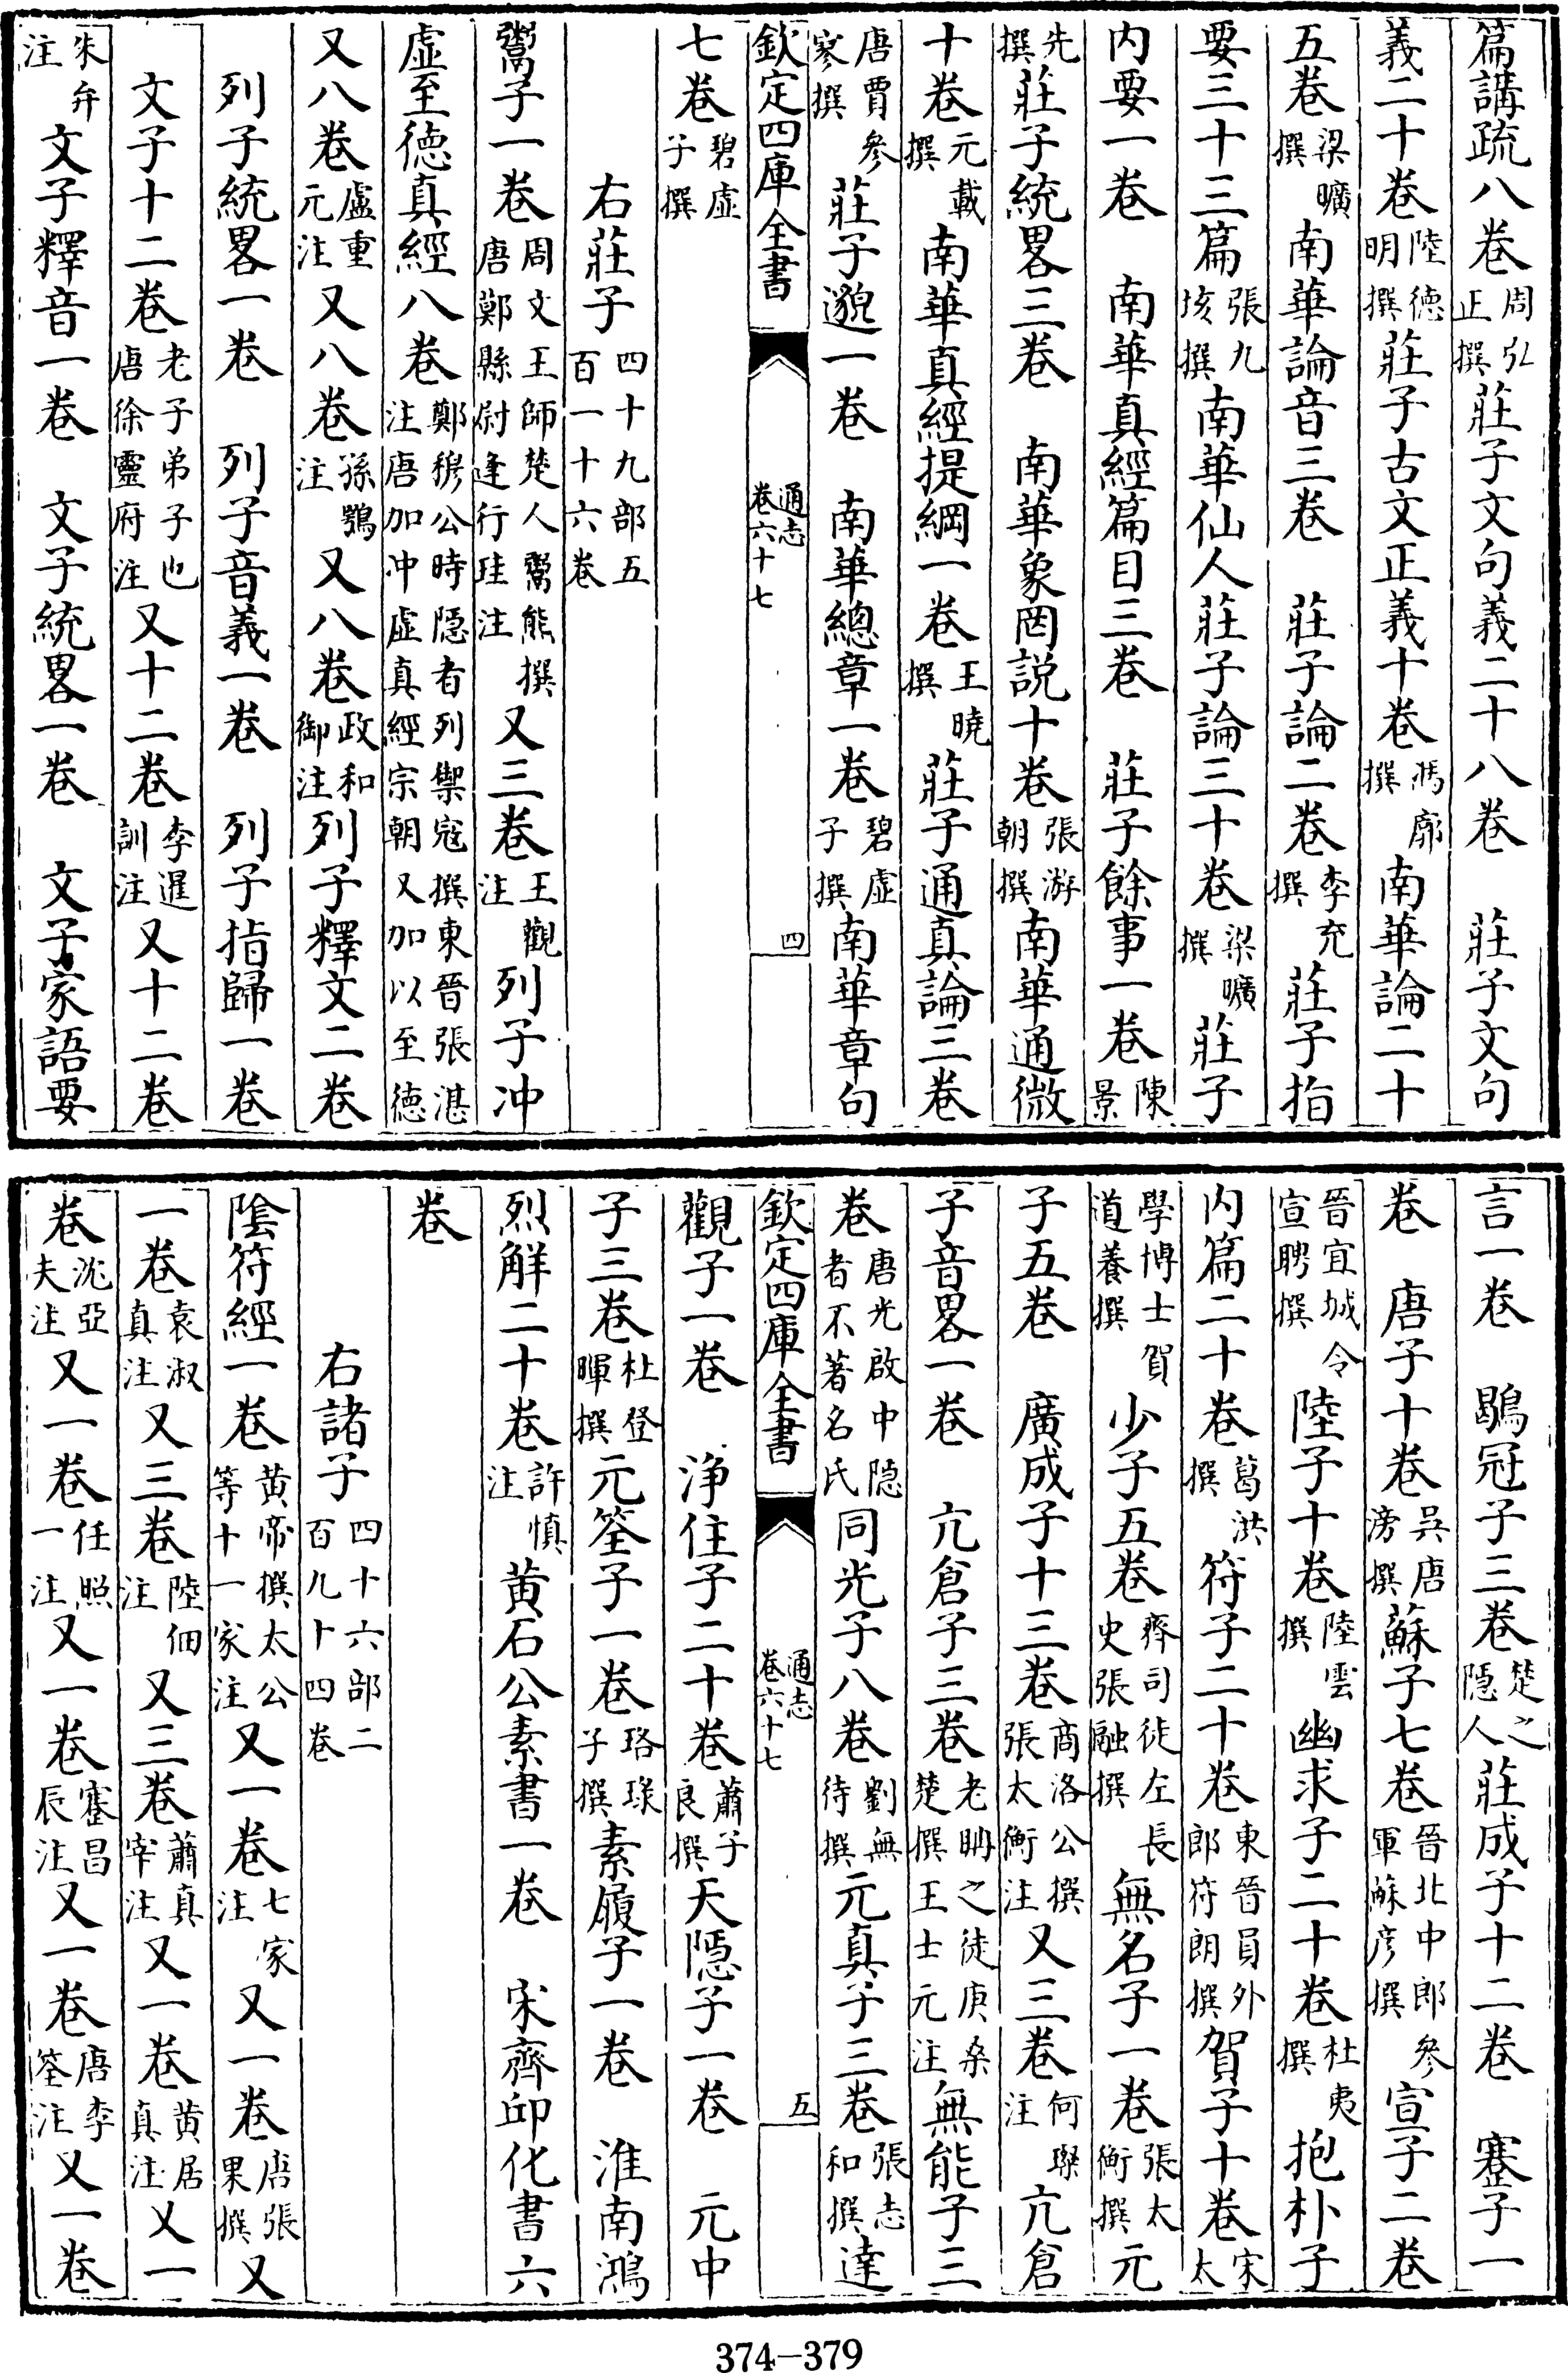 篇講疏八卷周弘正撰莊子文句義二十八卷　莊子文句
義二十卷陸德明撰莊子古文正義十卷馮廓撰南華論二十
五卷梁曠撰南華論音三卷　莊子論二卷李充撰莊子指
要三十三篇張九垓撰南華仙人莊子論三十卷梁曠撰莊子
内要一卷　南華真經篇目三卷　莊子餘事一卷陳景
先撰莊子統畧三卷　南華象罔説十卷張游朝撰南華通微
十卷元載撰南華真經提綱一卷王曉撰莊子通真論三卷
唐賈參寥撰莊子邈一卷　南華總章一卷碧虛子撰南華章句
欽定四庫全書　通志卷六十七　四
七卷碧虛子撰
右莊子四十九部五百一十六卷
鬻子一卷周文王師楚人鬻熊撰唐鄭縣尉逢行珪注又三卷王觀注列子冲
虛至德真經八卷鄭穆公時隱者列禦寇撰東晉張湛注唐加冲虛真經宗朝又加以至德
又八卷盧重元注又八卷孫鶚注又八卷政和御注列子釋文二卷
列子統畧一卷　列子音義一卷　列子指歸一卷
文子十二卷老子弟子也唐徐靈府注又十二卷李暹訓注又十二卷
朱弁注文子釋音一卷　文子統畧一卷　文子家語要
言一卷　鶡冠子三卷楚之隱人莊成子十二卷　蹇子一
卷　唐子十卷吳唐滂撰蘇子七卷晉北中郎參軍蘇彦撰宣子二卷
晉宜城令宣聘撰陸子十卷陸雲撰幽求子二十卷杜夷撰抱朴子
内篇二十卷葛洪撰符子二十卷東晉員外郎符朗撰賀子十卷宋太
學博士賀道養撰少子五卷齊司徒左長史張融撰無名子一卷張太衡撰元
子五卷　廣成子十三卷商洛公撰張太衡注又三卷何璨注亢倉
子音畧一卷　亢倉子三卷老聃之徒庚桑楚撰王士元注無能子三
卷唐光啟中隱者不著名氏同光子八卷劉無待撰元真子三卷張志和撰達
欽定四庫全書　通志卷六十七　五
觀子一卷　淨住子二十卷蕭子良撰天隱子一卷　元中
子三卷杜登暉撰元筌子一卷珞琭子撰素履子一卷　淮南鴻
烈解二十卷許慎注黄石公素書一卷　宋齊邱化書六
卷
右諸子四十六部二百九十四卷
陰符經一卷黄帝撰太公等十一家注又一卷七家注又一卷唐張果撰又
一卷袁淑真注又三卷陸佃注又三卷蕭真宰注又一卷黄居真注又一
卷沈亞夫注又一卷任照一注又一卷蹇昌辰注又一卷唐李筌注又一卷
374-379